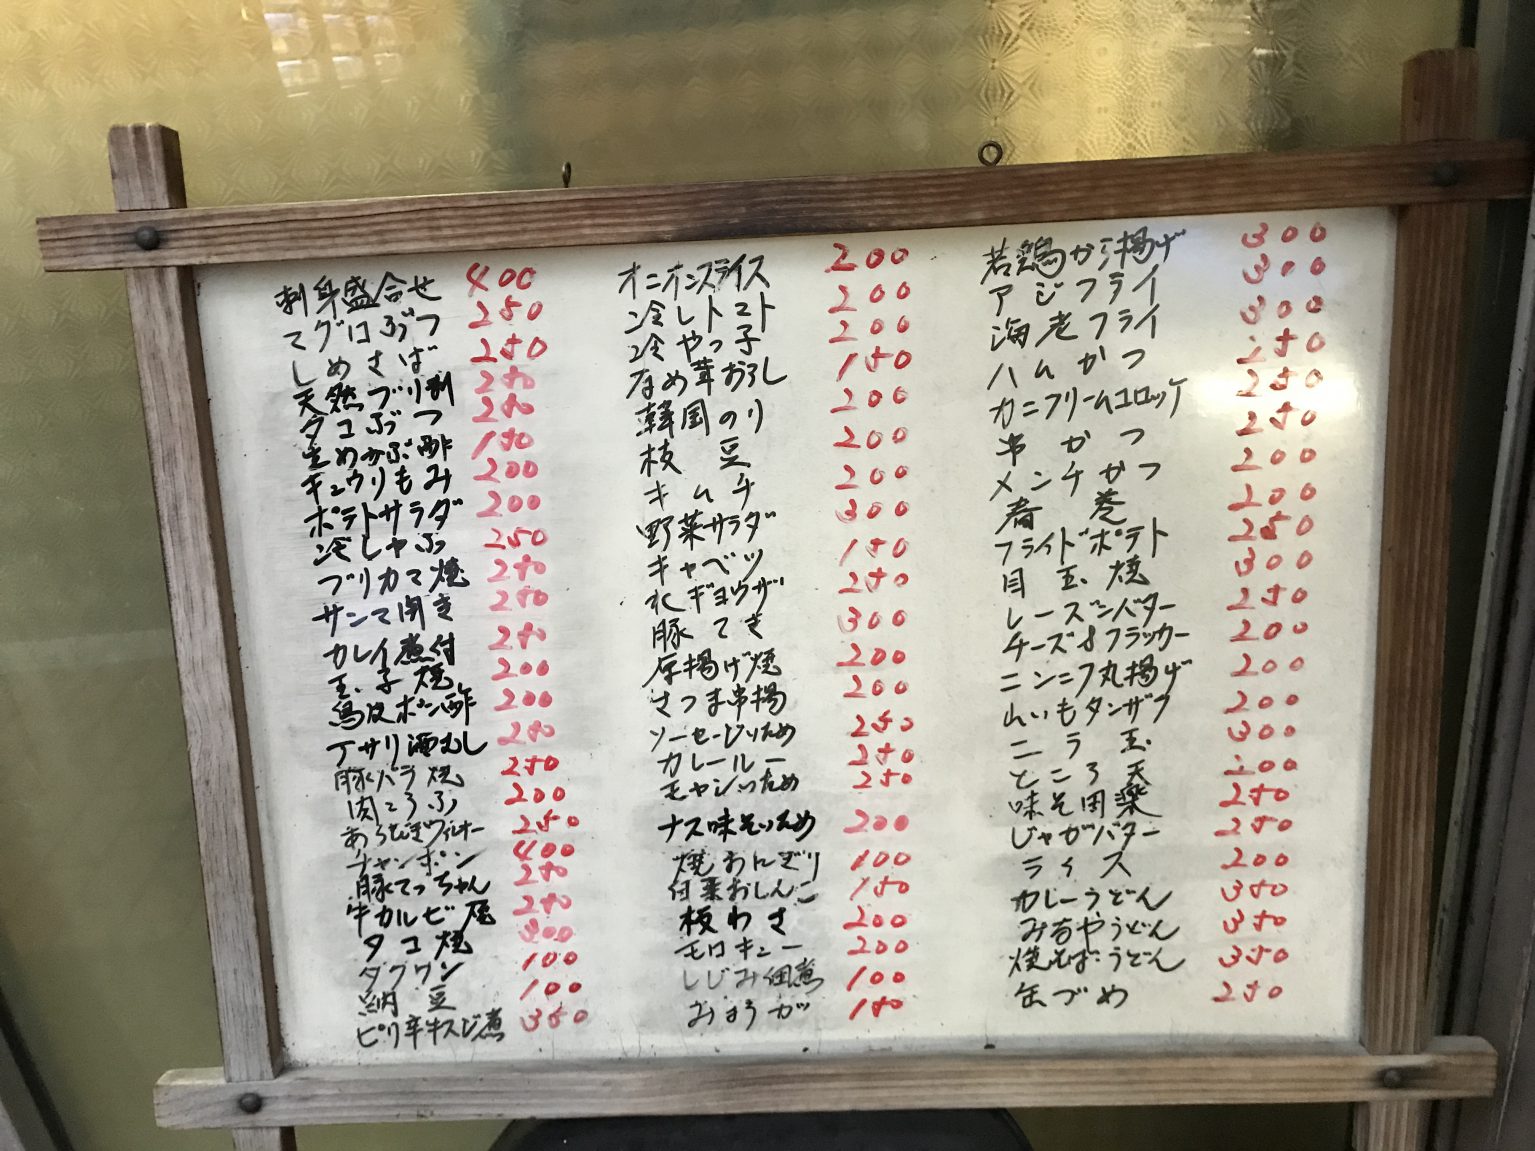 刺身盛合せ 400
マグロぶつ 250
しめさば 250
天然ブリ刺 250
タコぶつ 250
生めかぶ酢 150
キュウリもみ 200
ポテトサラダ 200
冷しゃぶ 250
ブリカマ焼 250
サンマ開き 250
カレイ煮付 250
玉子焼 200
鳥皮ポン酢 200
アサリ酒むし 250
豚バラ焼 250
肉どうふ 200
あらびきウインナー 250
チャンポン 400
豚てっちゃん 250
牛カルビ焼 250
タコ焼 300
タクワン 100
納豆 100
ピリ辛牛スジ煮 350
オニオンスライス 200
冷しトマト 200
冷やっ子 200
なめ茸おろし 150
韓国のり 200
枝豆 200
キムチ 200
野菜サラダ 300
キャベツ 150
水ギョウザ 250
豚てき 300
厚揚げ焼 200
さつま串揚 200
ソーセージいため 250
カレールー 250
モヤシいため 250
ナス味そいため 200
焼おにぎり 100
付菜おしんこ 150
板わさ 200
モロキュー 200
しじみ佃煮 100
みょうが 150
若鶏から揚げ 300
アジフライ 300
海老フライ 300
ハムかつ 250
カニクリームコロッケ 250
串かつ 250
メンチかつ 200
春巻 200
フライドポテト 250
目玉焼 300
レーズンバター 250
チーズ&クラッカー 200
ニンニク丸揚げ 200
山いもタンザク 200
ニラ玉 300
ところ天 200
味そ田楽 250
じゃがバター 250
ライス 200
カレーうどん 350
みそやうどん 350
焼そば・うどん 350
缶づめ 250